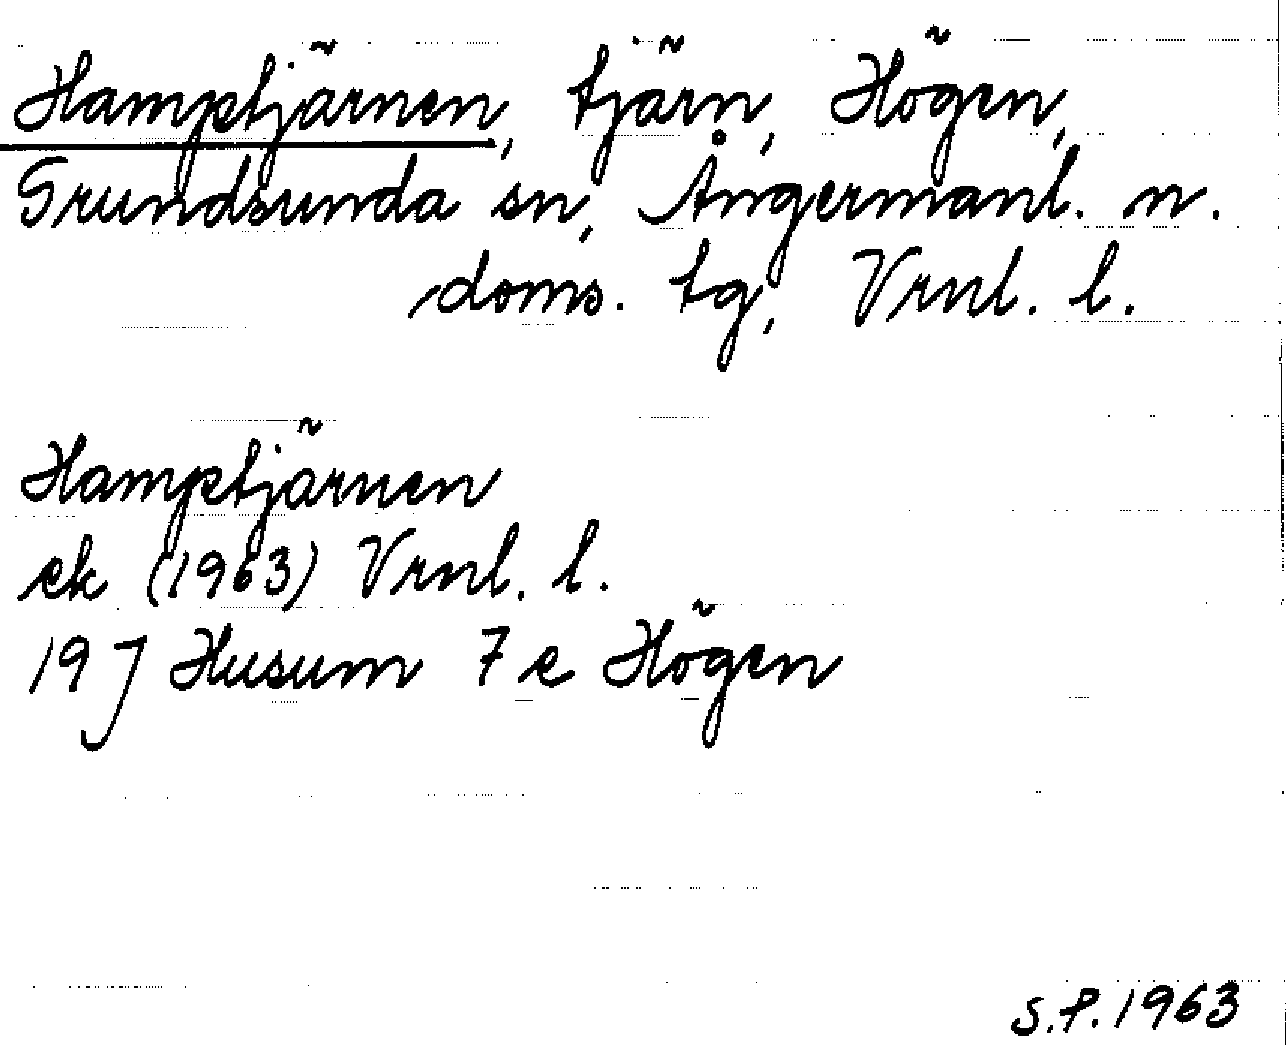 Hamptjärnen, tjärn, Högen,
Grundsunda sn, Ångermanl. n.
doms. tg, Vrnl. l.
Hamptjärnen
ek (1963) Vrnl. l.
19 J Husum 7 e Högen
S.P. 1963